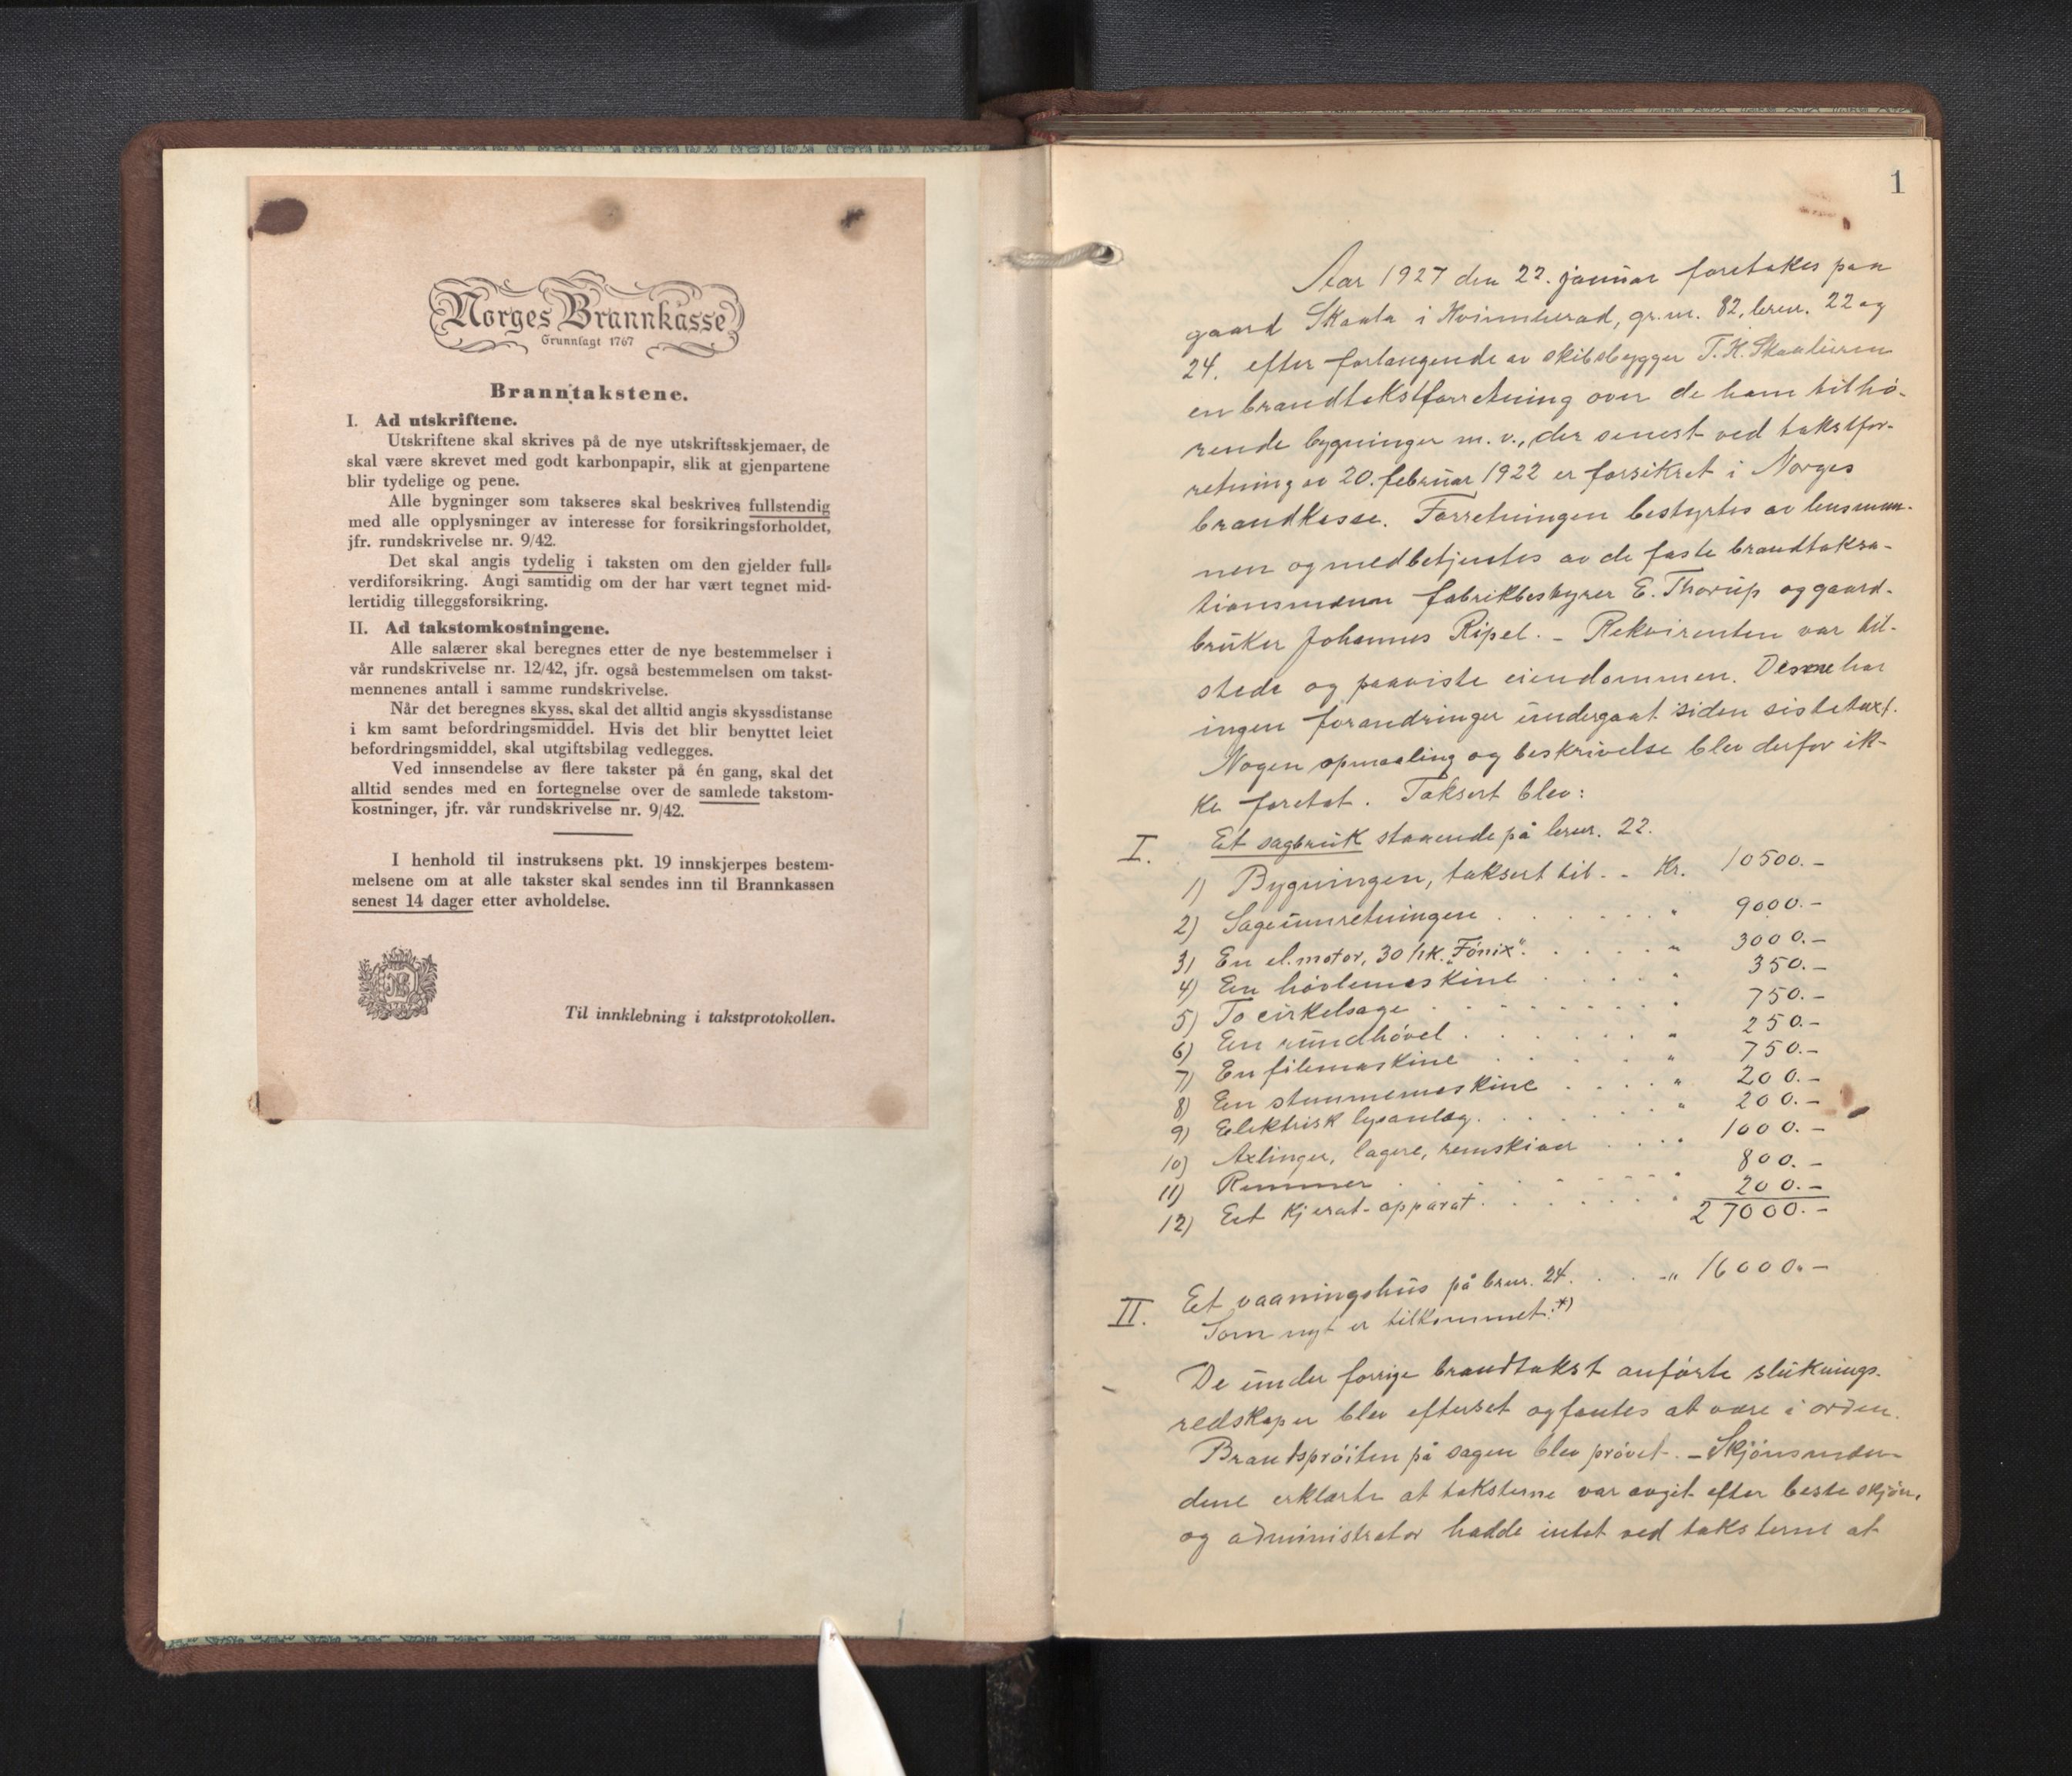 Norges Brannkasse
Grunnlagt 1767
Branntakstene.
I. Ad utskriftene.
Utskriftene skal skrives på de nye utskriftsskjemaer, de
skal være skrevet med godt karbonpapir, slik at gjenpartene
blir tydelige og pene.
Alle bygninger som takseres skal beskrives fullstendig
med alle opplysninger av interesse for forsikringsforholdet,
jfr. rundskrivelse nr. 9/42.
Det skal angis tydelig i taksten om den gjelder full-
verdiforsikring. Angi samtidig om der har vært tegnet mid-
lertidig tilleggsforsikring.
II. Ad takstomkostningene.
Alle salærer skal beregnes etter de nye bestemmelser i
vår rundskrivelse nr. 12/42, jfr. også bestemmelsen om takst-
mennenes antall i samme rundskrivelse.
Når det beregnes skyss, skal det alltid angis skyssdistanse
i km samt befordringsmiddel. Hvis det blir benyttet leiet
befordringsmiddel, skal utgiftsbilag vedlegges.
Ved innsendelse av flere takster på én gang, skal det
alltid sendes med en fortegnelse over de samlede takstom-
kostninger, jfr. vår rundskrivelse nr. 9/42.
I henhold til instruksens pkt. 19 innskjerpes bestem-
melsene om at alle takster skal sendes inn til Brannkassen
senest 14 dager etter avholdelse.
Til innklebning i takstprotokollen.
1
Aar 1927 den 22. januar foretokes paa
gaard Skaala i Kvinnherad, gr.nr. 82, brnr. 22 og
24. efter forlangende av skibsbygger T. H. Skaaluren
en brandtakstforretning over de ham tilhø-
rende bygninger m. v., der senest ved takstfor-
retning av 20. februar 1922 er forsikret i Norges
brandkasse. Forretningen bestyrtes av lensman-
nen og medbetjentes av de faste brandtaksa-
tionsmænn fabrikbestyrer E. Thorup og gaard-
bruker Johannes Ripel. – Rekvirenten var til-
stede og paaviste eiendommen. Denne har
ingen forandringer undergaat siden siste taxt.
Nogen opmaaling og beskrivelse blev derfor ik-
ke foretat. Taksert blev:
I. Et sagbruk staaende på brnr. 22.
1) Bygningen, taksert til - - Kr. 10500.-
2) Sageinnretningen . . . . . . " 9000.-
3) En el. motor, 30 hk. "Fönix". . . . . " 3000.-
4) En hövlemaskine . . . . " 350.-
5) To cirkelsage . . . . . . . . " 750.-
6) En rundhövel . . . . . . " 250.-
7) En filemaskine . . . . " 750.-
8) En stemmemaskine . . . . " 200.-
9) Elektrisk lysanlæg. . . . . . . " 200.-
10) Axlinger, lagere, remskiver . . . . 1000.-
11) Remmer . . . . . . " 800.-
12) Et kjerat-apparat . . . . . . . " 200.-
27000.-
II. Et vaaningshus på brnr. 24. . . -" 16000.-
Som nyt er tilkommet: *)
De under forrige brandtakst anførte sluknings-
redskaper blev efterset og fantes at være i orden.
Brandsprøiten på sagen blev prøvet. – Skjönsmæn-
dene erklærte at taksterne var avgit efter beste skjön,
og administrator hadde intet ved taksterne at